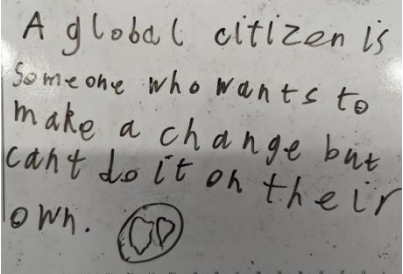 A global citizen is
someone who wants to
make a change but
cant do it on their
own.